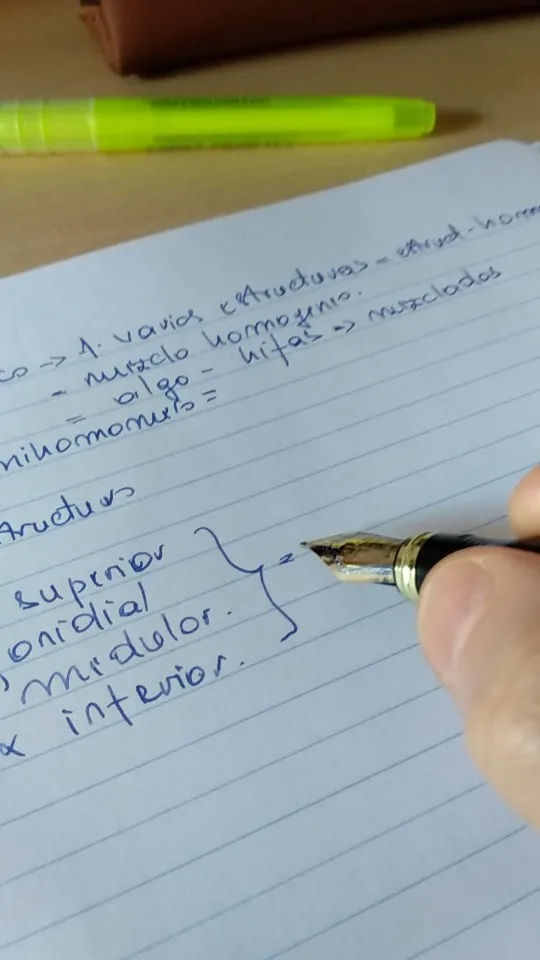 co → 1. varias estructuras = estrud. hom
- mezclo homogenio.
= algo - hifas => mezclados
nihomomers =
structura
superior
onidial
medulor.
x inferior.